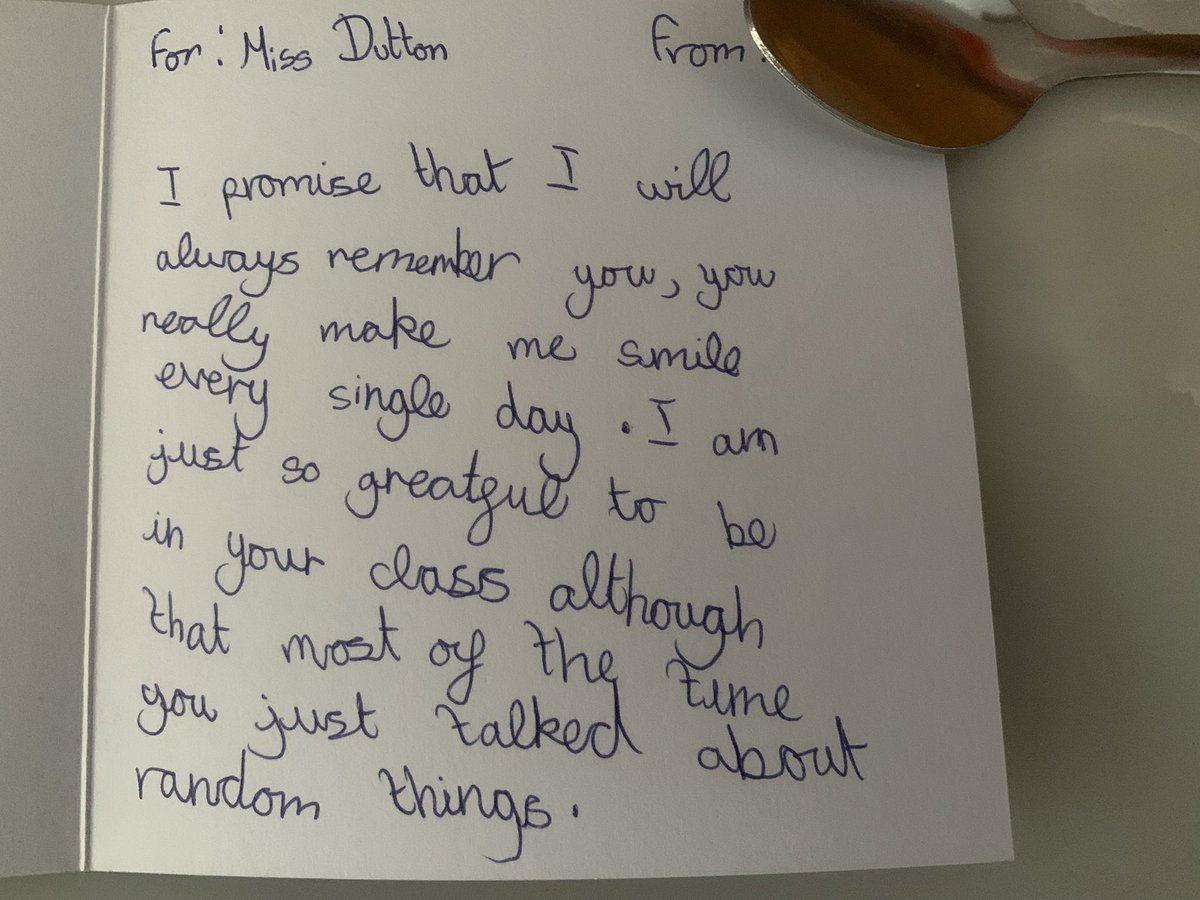 For: Miss Dutton From:
I promise that I will
always remember you, you
really make me smile
every single day. I am
just so greatful to be
in your class although
that most of the time
you just talked about
random things.